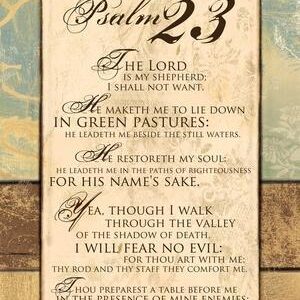 Psalm 23
The Lord
is my shepherd;
I shall not want.
He maketh me to lie down
in green pastures:
he leadeth me beside the still waters.
He restoreth my soul:
he leadeth me in the paths of righteousness
for his name's sake.
Yea, though I walk
through the valley
of the shadow of death,
I will fear no evil:
for thou art with me;
thy rod and thy staff they comfort me.
Thou preparest a table before me
in the presence of mine enemies: